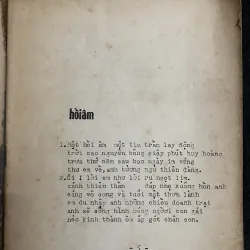 hồiâm
1.Một hồi âm một tim trần lay động
trời cao nguyên bừng giây phút huy hoàng
trưa thứ năm sau bao ngày im vắng
thư em về, anh tưởng ngủ thiên đàng.
2.Ôi ! lời em như lời ru ngọt lịm
cánh thiên thần đáp nhẹ xuống hồn anh
sáng vô song và tuổi mật thưa lành
em du nhập anh những chiều doanh trại
anh sẽ sống hình bóng người con gái
nẻo kinh thành ôm ấp gót chân son.
- 5 -